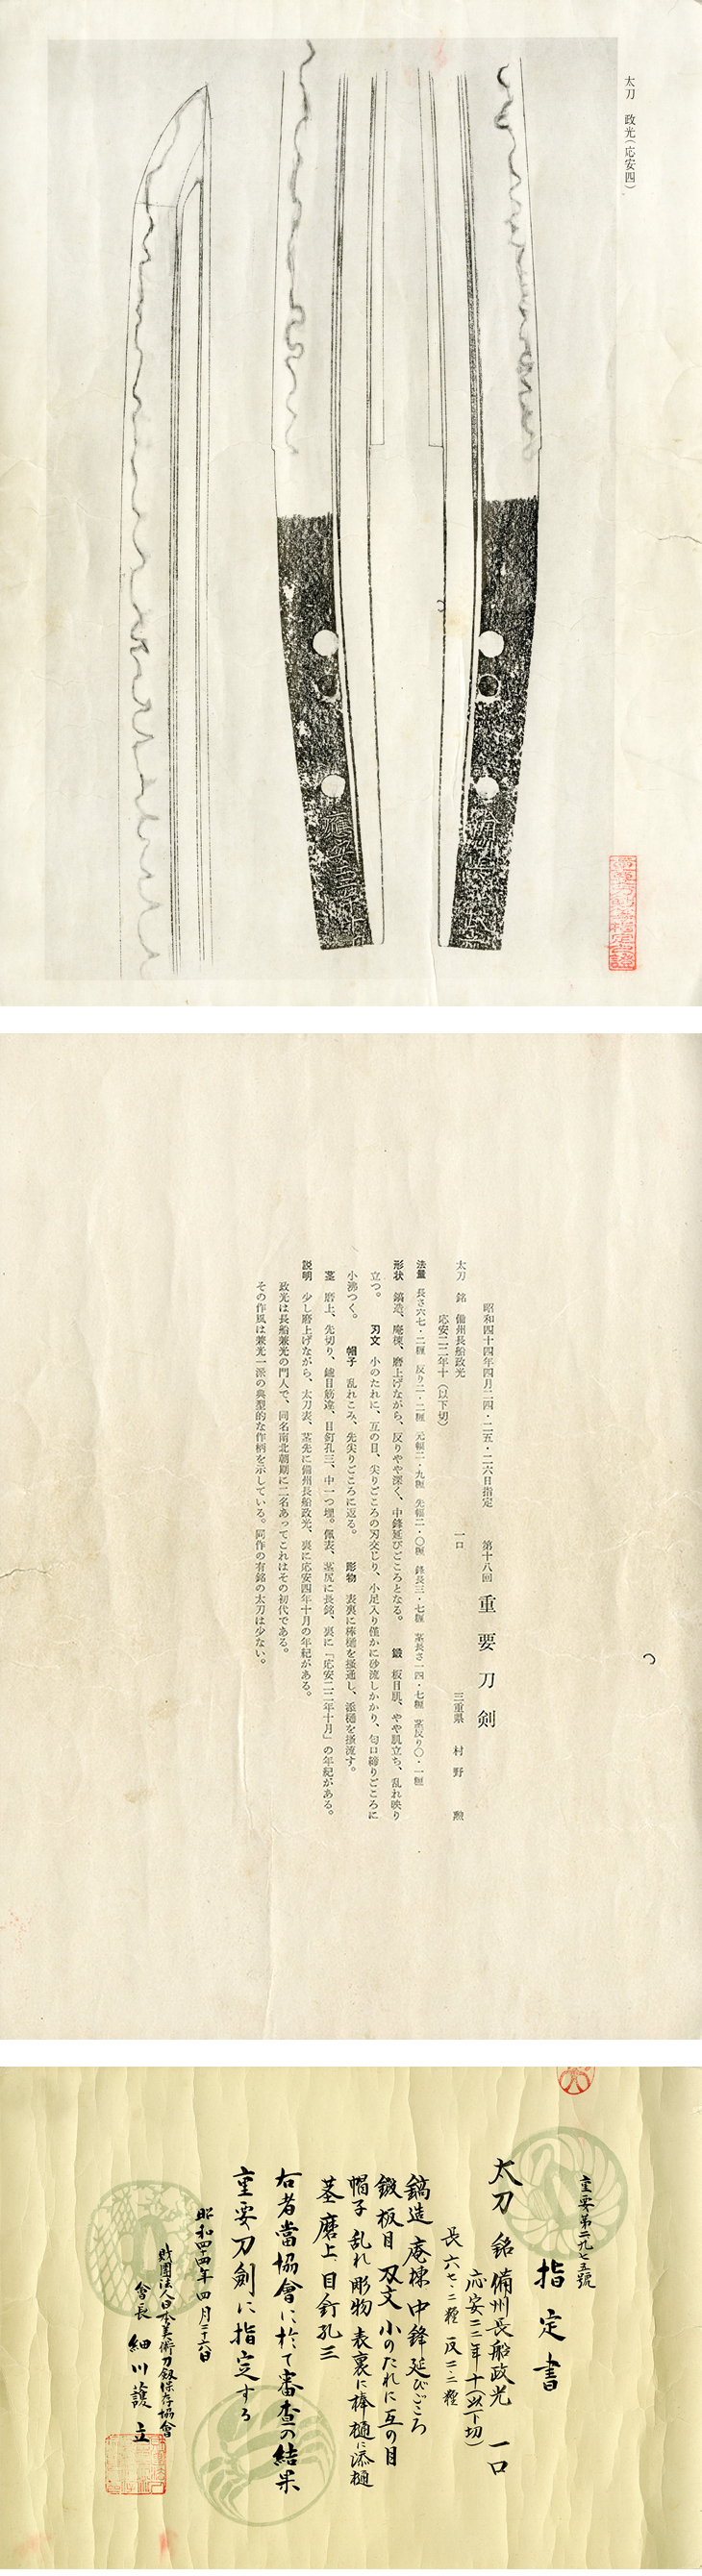 太刀 政光(応安四)
昭和四十四年四月二四・二五・二六日指定 第十八回 重要刀剣
太刀 銘 備州長船政光 一口 三重県 村野 勲
応安二二年十(以下切)
法量 長さ六七・二糎 反り二・二糎 元幅二・九糎 先幅二・〇糎 鋒長三・七糎 茎長さ一四・七糎 茎反り〇・一糎
形状 鎬造、庵棟、磨上げながら、反りやや深く、中鋒延びごころとなる。 鍛 板目肌、やや肌立ち、乱れ映り
立つ。 刃文 小のたれに、互の目、尖りごころの刃交じり、小足入り僅かに砂流しかかり、匂口締りごころに
小沸つく。 帽子 乱れこみ、先尖りごころに返る。 彫物 表裏に棒樋を掻通し、添樋を掻流す。
茎 磨上、先切り、鑢目筋違、目釘孔三、中一つ埋。佩表、茎尻に長銘、裏に「応安二二年十月」の年紀がある。
説明 少し磨上げながら、太刀表、茎先に備州長船政光、裏に応安四年十月の年紀がある。
政光は長船兼光の門人で、同名南北朝期に二名あってこれはその初代である。
その作風は兼光一派の典型的な作柄を示している。同作の有銘の太刀は少ない。
重要第二九七五號
指定書
太刀 銘 備州長船政光 一口
応安二二年十(以下切)
長 六七・二糎 反 二・二糎
鎬造 庵棟 中鋒延びごころ
鍛 板目 刃文 小のたれに互の目
帽子 乱れ 彫物 表裏に棒樋に添樋
茎 磨上 目釘孔三
右者當協會に於て審査の結果
重要刀剣に指定する
昭和四十四年四月二十六日
財團法人日本美術刀劔保存協會
會長 細川護立